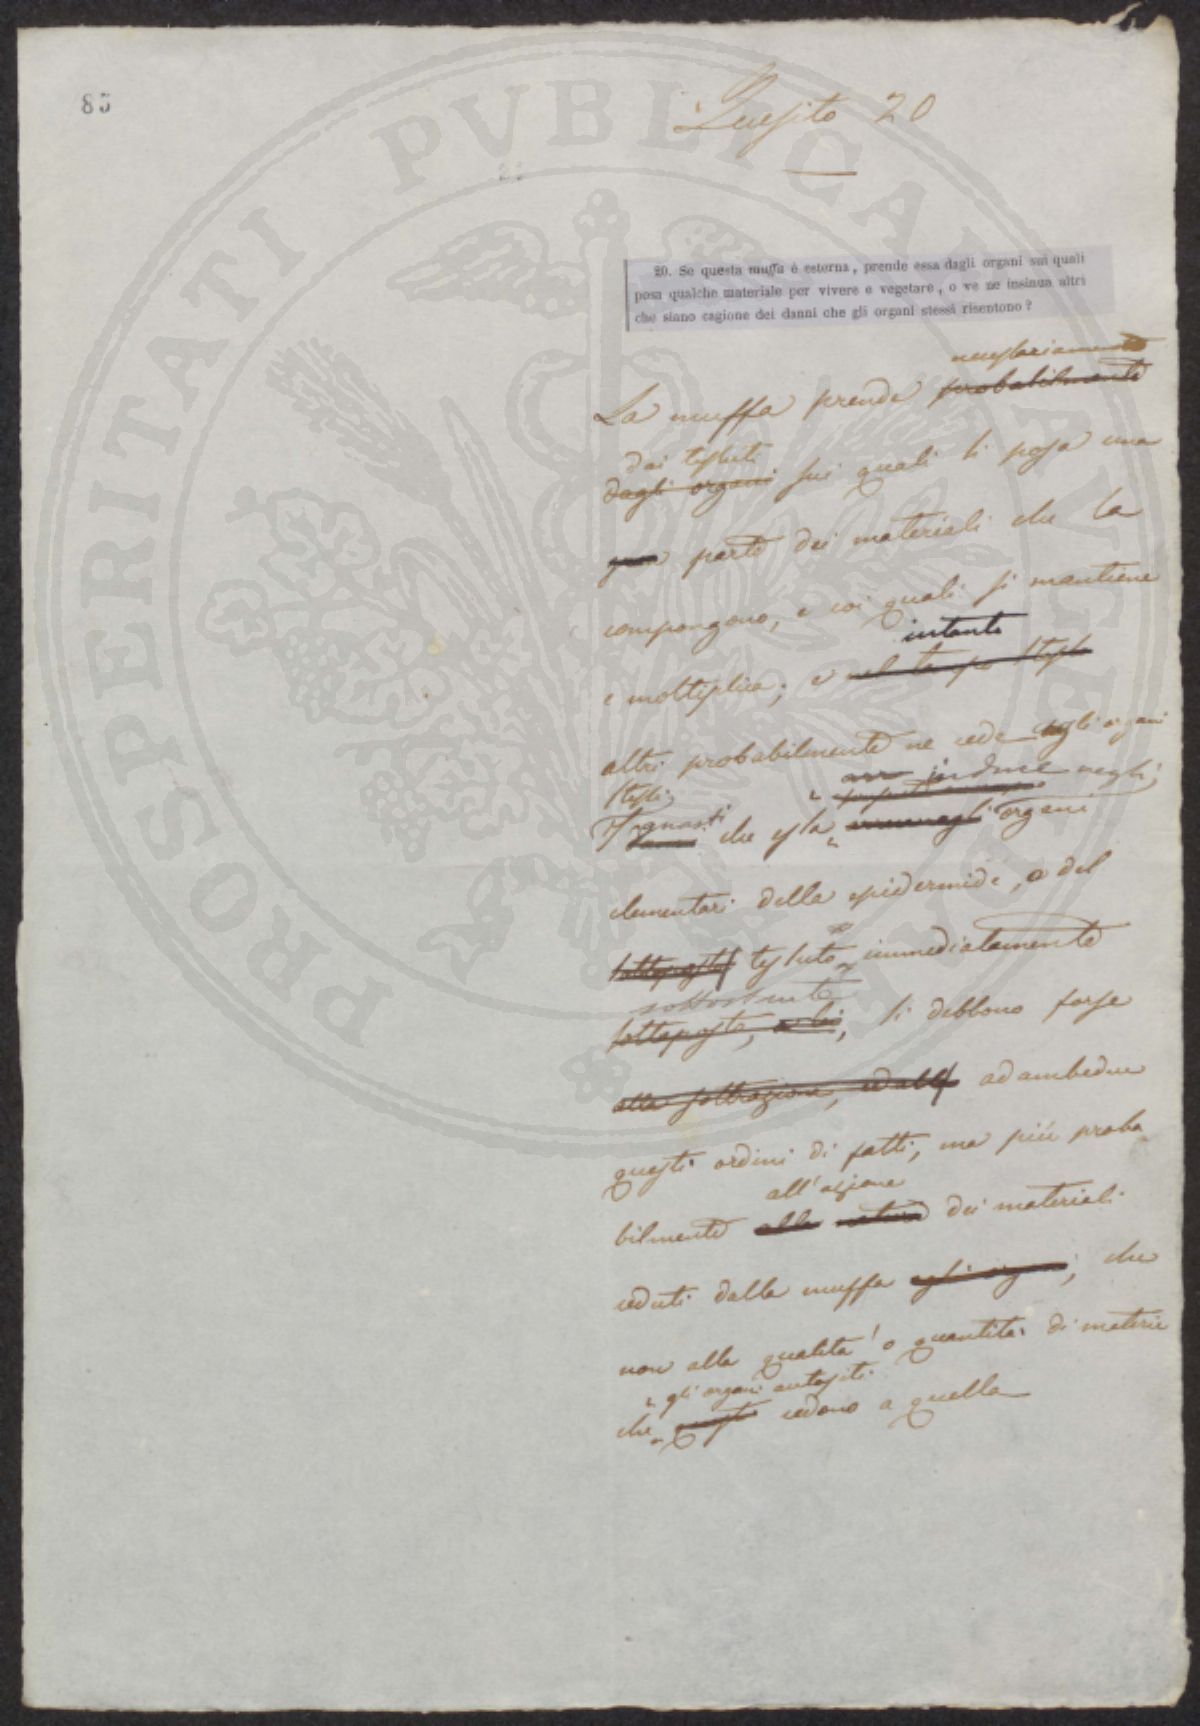 85
Quesito 20
20. Se questa muffa è esterna, prende essa dagli organi sui quali
posa qualche materiale per vivere e vegetare, o ve ne insinua altri
che siano cagione dei danni che gli organi stessi risentono?
necessariamente
La muffa prende probabilmente
dai tessuti
dagli organi sui quali si posa una
parte dei materiali che la
compongono, e coi quali si mantiene
intanto
e moltiplica; e nel tempo stesso
altri probabilmente ne cede agli organi
stessi;
induce negli
guasti che essa organi
elementari della epidermide, o del
sottoposto tessuto immediatamente
sottostante
sottoposto, si debbono forse
alla sottrazione, ed alla ad ambedue
questi ordini di fatti, ma più proba
all'azione
bilmente alla natura dei materiali
ceduti dalla muffa agli organi, che
non alla qualità o quantità di materie
gli organi anzidetti
che questi cedono a quella
PROSPERITATI PVBLICAE AVGENDAE